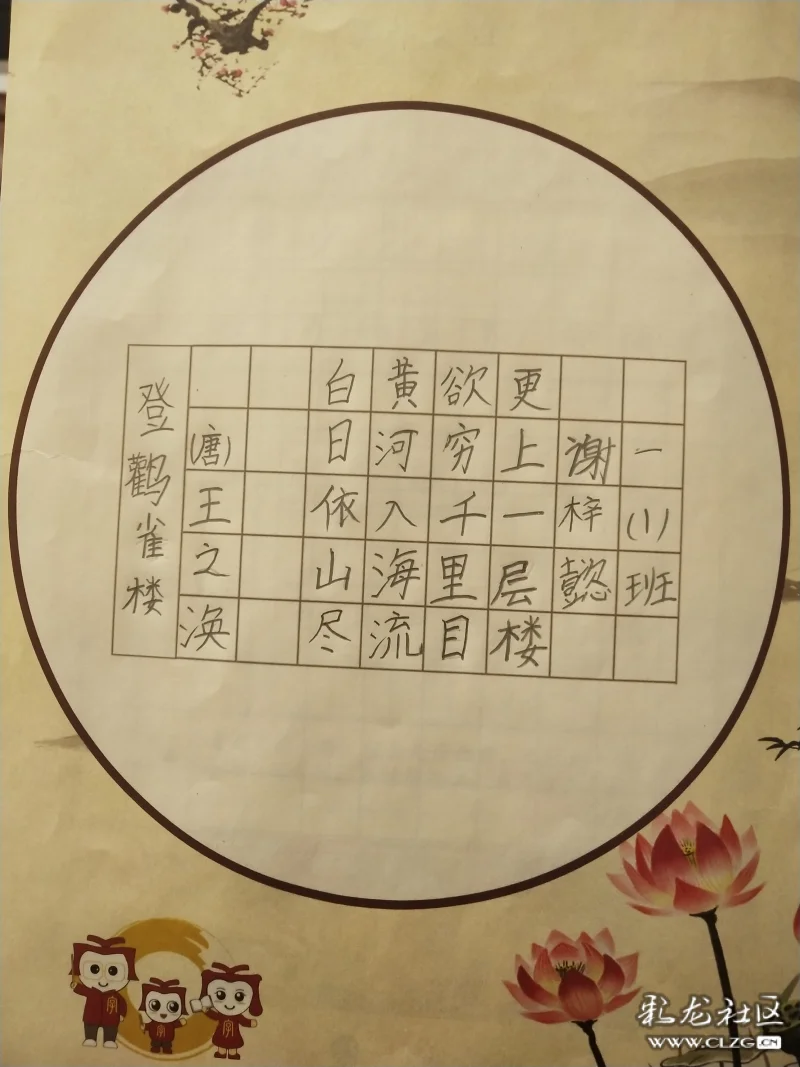 登鹳雀楼
(唐)王之涣
白日依山尽
黄河入海流
欲穷千里目
更上一层楼
谢梓懿
一(1)班
字
字
字
彩龙社区
WWW.CLZG.CN